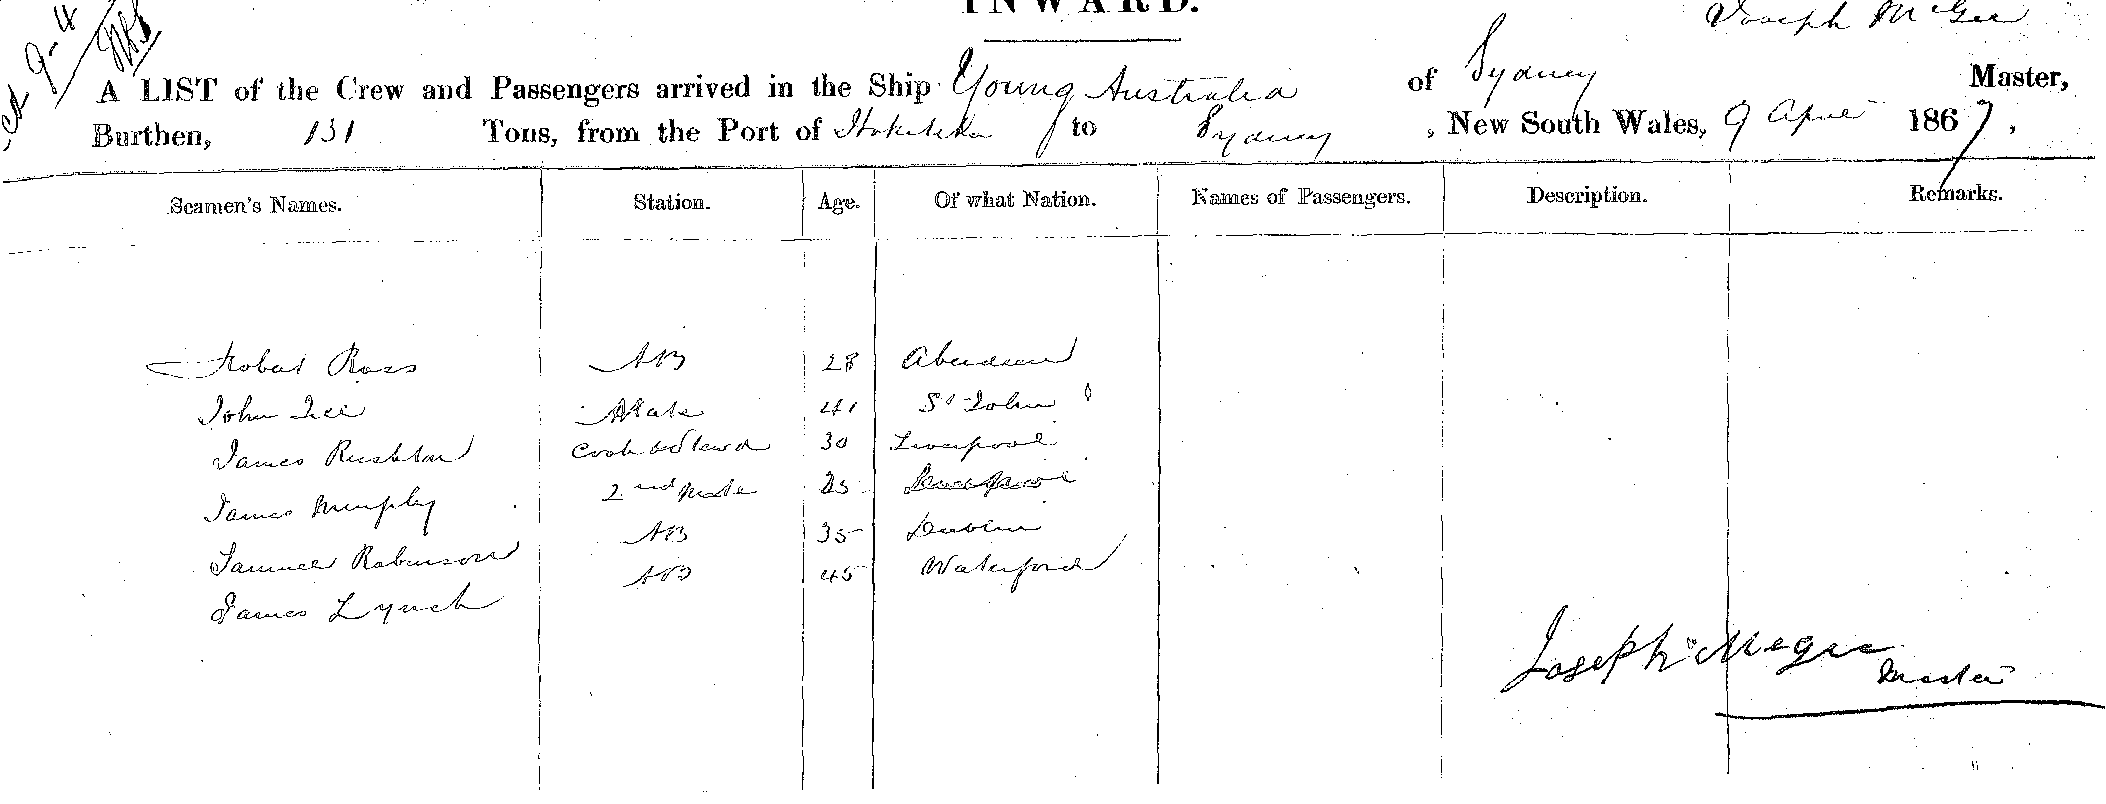 INWARD.
Joseph McGee
9-4
A LIST of the Crew and Passengers arrived in the Ship Young Australia of Sydney Master,
Burthen, 131 Tons, from the Port of Hokitika to Sydney, New South Wales, 9 April 1867,
Seamen's Names. Station. Age. Of what Nation. Names of Passengers. Description. Remarks.
Robert Ross AB 28 Aberdeen
John Lee Mate 41 St John
James Rushton Cook & Steward 30 Liverpool
James Murphy 2nd Mate 25 Liverpool
Samuel Robinson AB 35 Dublin
James Lynch AB 45 Waterford
Joseph Megee
Master